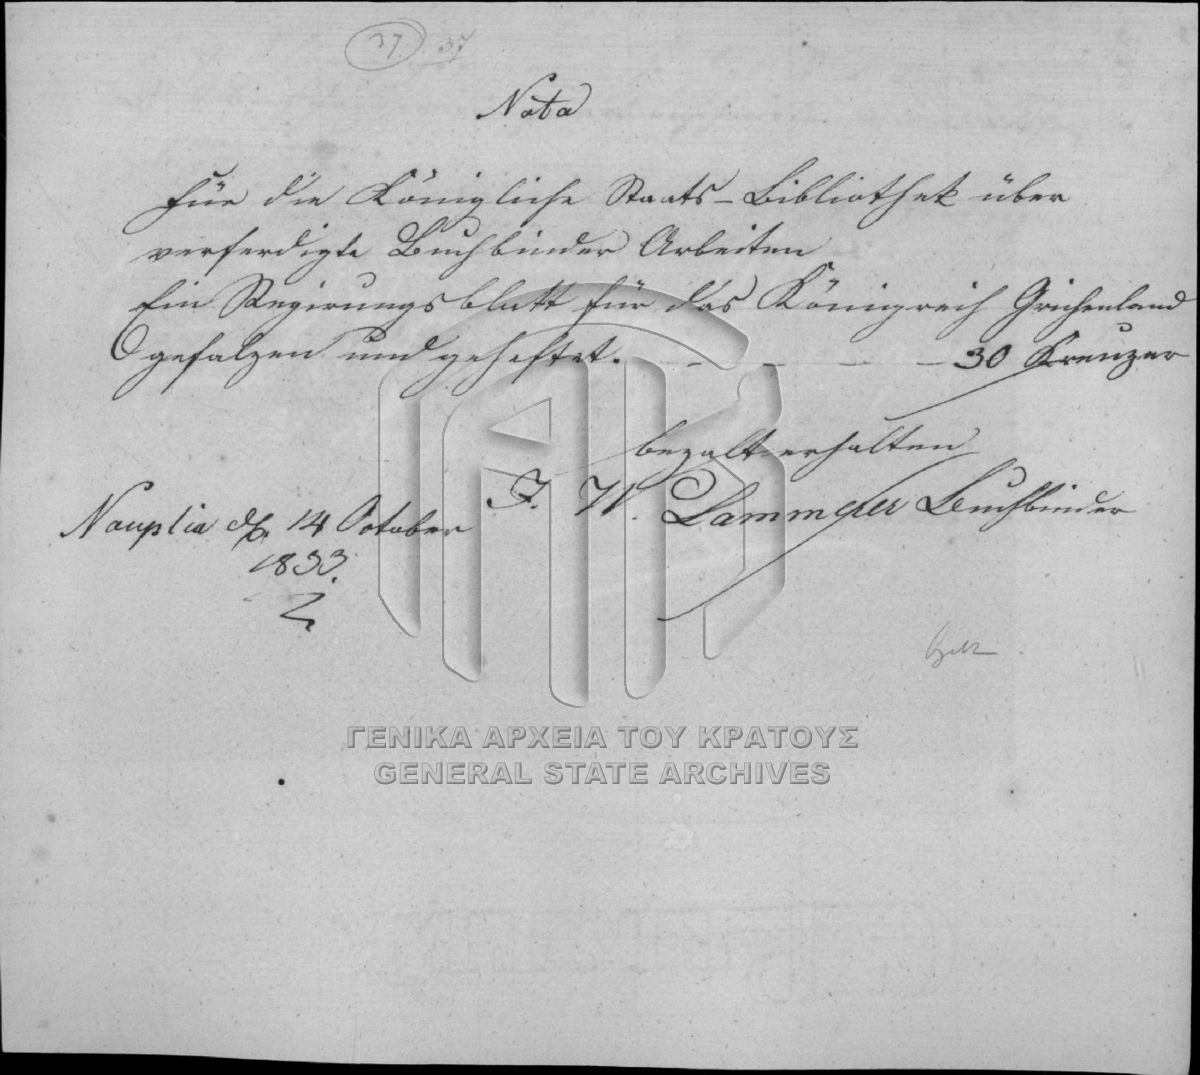 37. 37
Nota
Für die Königliche Staats-Bibliothek über
verferdigte Buchbinder Arbeiten
Ein Regirungsblatt für das Königreich Grichenland
gefalzen und geheftet. — — — — 30 Kreuzer
bezalt erhalten
F. W. Lammeyer Buchbinder
Nauplia d. 14 October
1833.
ΓΕΝΙΚΑ ΑΡΧΕΙΑ ΤΟΥ ΚΡΑΤΟΥΣ
GENERAL STATE ARCHIVES